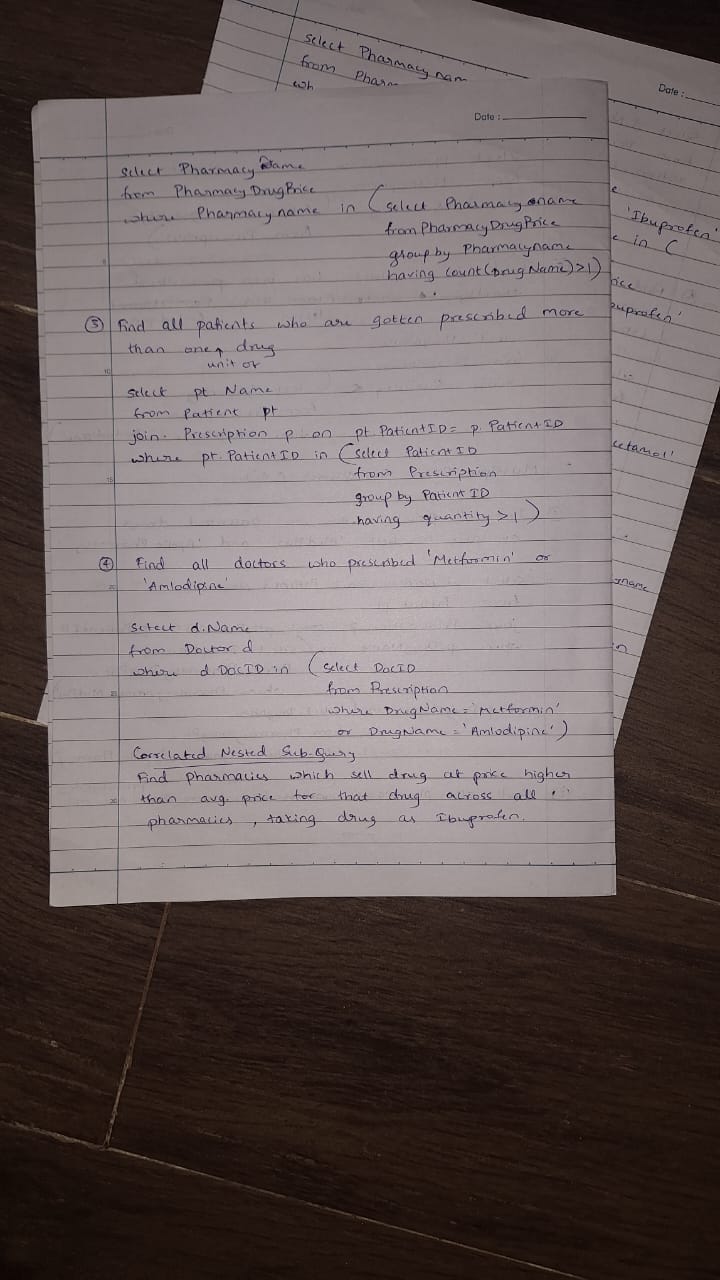 Select Pharmacy nam
from Pharm
wh
Date :
Date :
select Pharmacy Name
from Pharmacy DrugPrice
where Pharmacyname in (select Pharmacyname
from PharmacyDrugPrice
group by Pharmacyname
having count(Drug Name)>1)
③ Find all patients who are gotten prescribed more
than one unit of drug
select pt. Name
from Patient pt
join Prescription p on pt. PatientID = p. PatientID
where pt. PatientID in (select PatientID
from Prescription
group by Patient ID
having quantity >1)
④ Find all doctors who prescribed 'Metformin' or
'Amlodipine'
select d.Name
from Doctor d
where d.DocID in (select DocID
from Prescription
where DrugName = 'Metformin'
or DrugName = 'Amlodipine')
Correlated Nested Sub-Query
Find pharmacies which sell drug at price higher
than avg. price for that drug across all
pharmacies, taking drug as Ibuprofen.
e
'Ibuprofen'
e in (
rice
buprofen'
cetamol'
yname
in